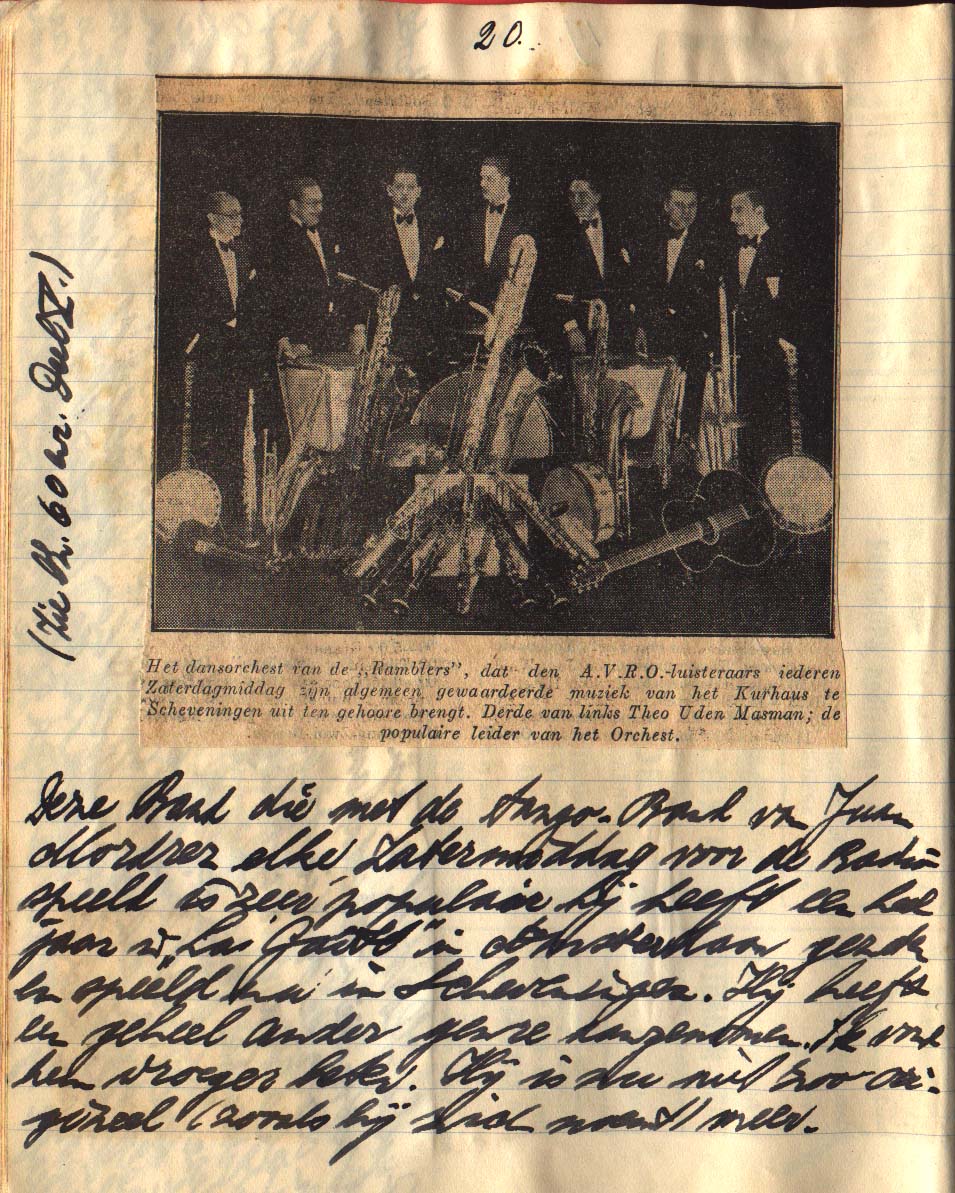 20.
(Zie Blz. 60 nr. Deel V.)
Het dansorchest van de „Ramblers”, dat den A.V.R.O.-luisteraars iederen
Zaterdagmiddag zijn algemeen gewaardeerde muziek van het Kurhaus te
Scheveningen uit ten gehoore brengt. Derde van links Theo Uden Masman; de
populaire leider van het Orchest.
Deze Band die met de tango-Band van Juan
elke Zatermiddag voor de Radio
speeld is zeer populair hij heeft een heel
jaar in „La Gaité” in Amsterdam
en speeld nu in Scheveningen. Hij heeft
een geheel ander genre aangenomen. Ik vond
hem vroeger beter. Hij is nu niet zoo ori-
gineel (zooals hij zich noemt) meer.